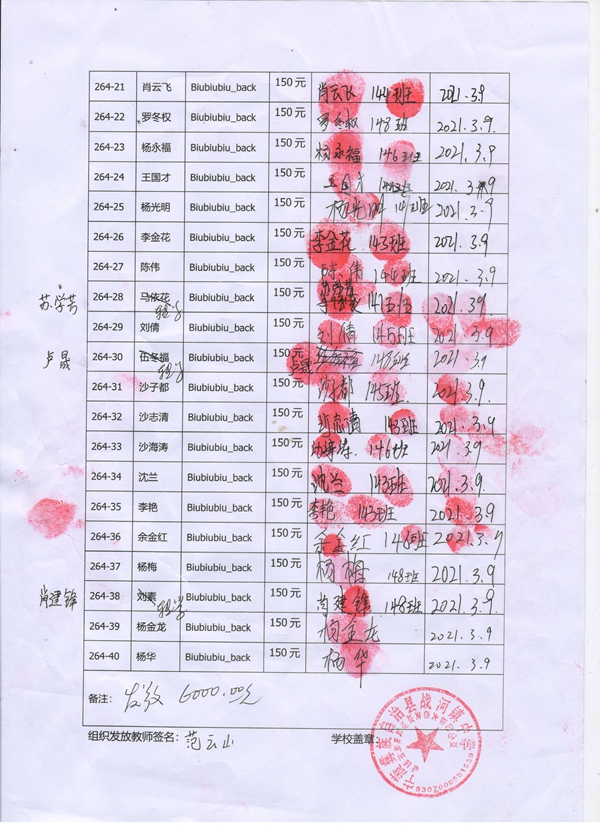 264-21 肖云飞 Biubiubiu_back 150元 肖云飞 144班 2021.3.9
264-22 罗冬权 Biubiubiu_back 150元 罗冬权 148班 2021.3.9.
264-23 杨永福 Biubiubiu_back 150元 杨永福 146班 2021.3.9
264-24 王国才 Biubiubiu_back 150元 王国才 2021.3.9
264-25 杨光明 Biubiubiu_back 150元 杨光明 2021.3.9
264-26 李金花 Biubiubiu_back 150元 李金花 143班 2021.3.9
264-27 陈伟 Biubiubiu_back 150元 陈伟 144班 2021.3.9
苏学芳 264-28 马依花 Biubiubiu_back 150元 2021.3.9
264-29 刘倩 Biubiubiu_back 150元 刘倩 145班 2021.3.9
卢晟 264-30 伍冬福 Biubiubiu_back 150元 卢晟 148班 2021.3.9
264-31 沙子都 Biubiubiu_back 150元 沙子都 145班 2021.3.9.
264-32 沙志清 Biubiubiu_back 150元 沙志清 143班 2021.3.9
264-33 沙海涛 Biubiubiu_back 150元 沙海涛 146班 2021.3.9
264-34 沈兰 Biubiubiu_back 150元 沈兰 143班 2021.3.9
264-35 李艳 Biubiubiu_back 150元 李艳 143班 2021.3.9
264-36 余金红 Biubiubiu_back 150元 余金红 146班 2021.3.9
264-37 杨梅 Biubiubiu_back 150元 杨梅 148班 2021.3.9
肖建锋 264-38 刘素 Biubiubiu_back 150元 肖建锋 148班 2021.3.9.
264-39 杨金龙 Biubiubiu_back 150元 杨金龙 2021.3.9
264-40 杨华 Biubiubiu_back 150元 杨华 2021.3.9
备注： 发放 6000.00元
组织发放教师签名： 范云山 学校盖章：
自治县战河镇中学